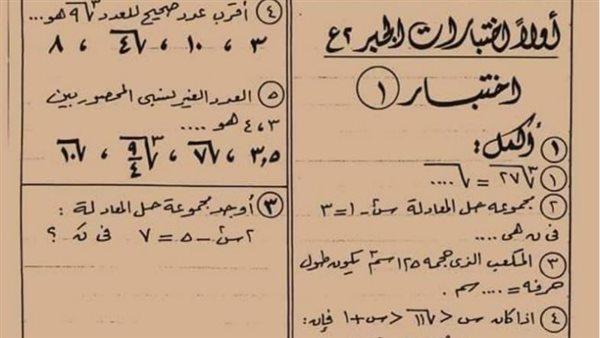 أولاً اختبارات الجبر ٢ع
اختبار (١)
(١) أكمل:
(١) ∛٢٧ = √ ....
(٢) مجموعة حل المعادلة س - ١ = ٣
فى ن هى ....
(٣) المكعب الذى حجمه ١٢٥ سم٣ يكون طول
حرفه = .... سم .
(٤) اذا كان س < √١١ < س + ١ فإن:
(٤) أقرب عدد صحيح للعدد ∛٩ هو...
٣ ، ١٠ ، √٤ ، ٨
(٥) العدد الغير نسبى المحصور بين
٣ ، ٤ هو ....
٣,٥ ، √٧ ، ∛٩/٤ ، √١٠
(٣) أوجد مجموعة حل المعادلة :
٢س - ٥ = ٧ فى ن ؟